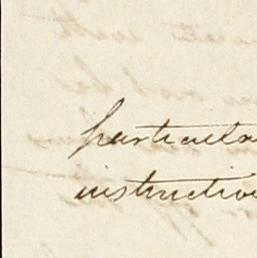 particula
instructio